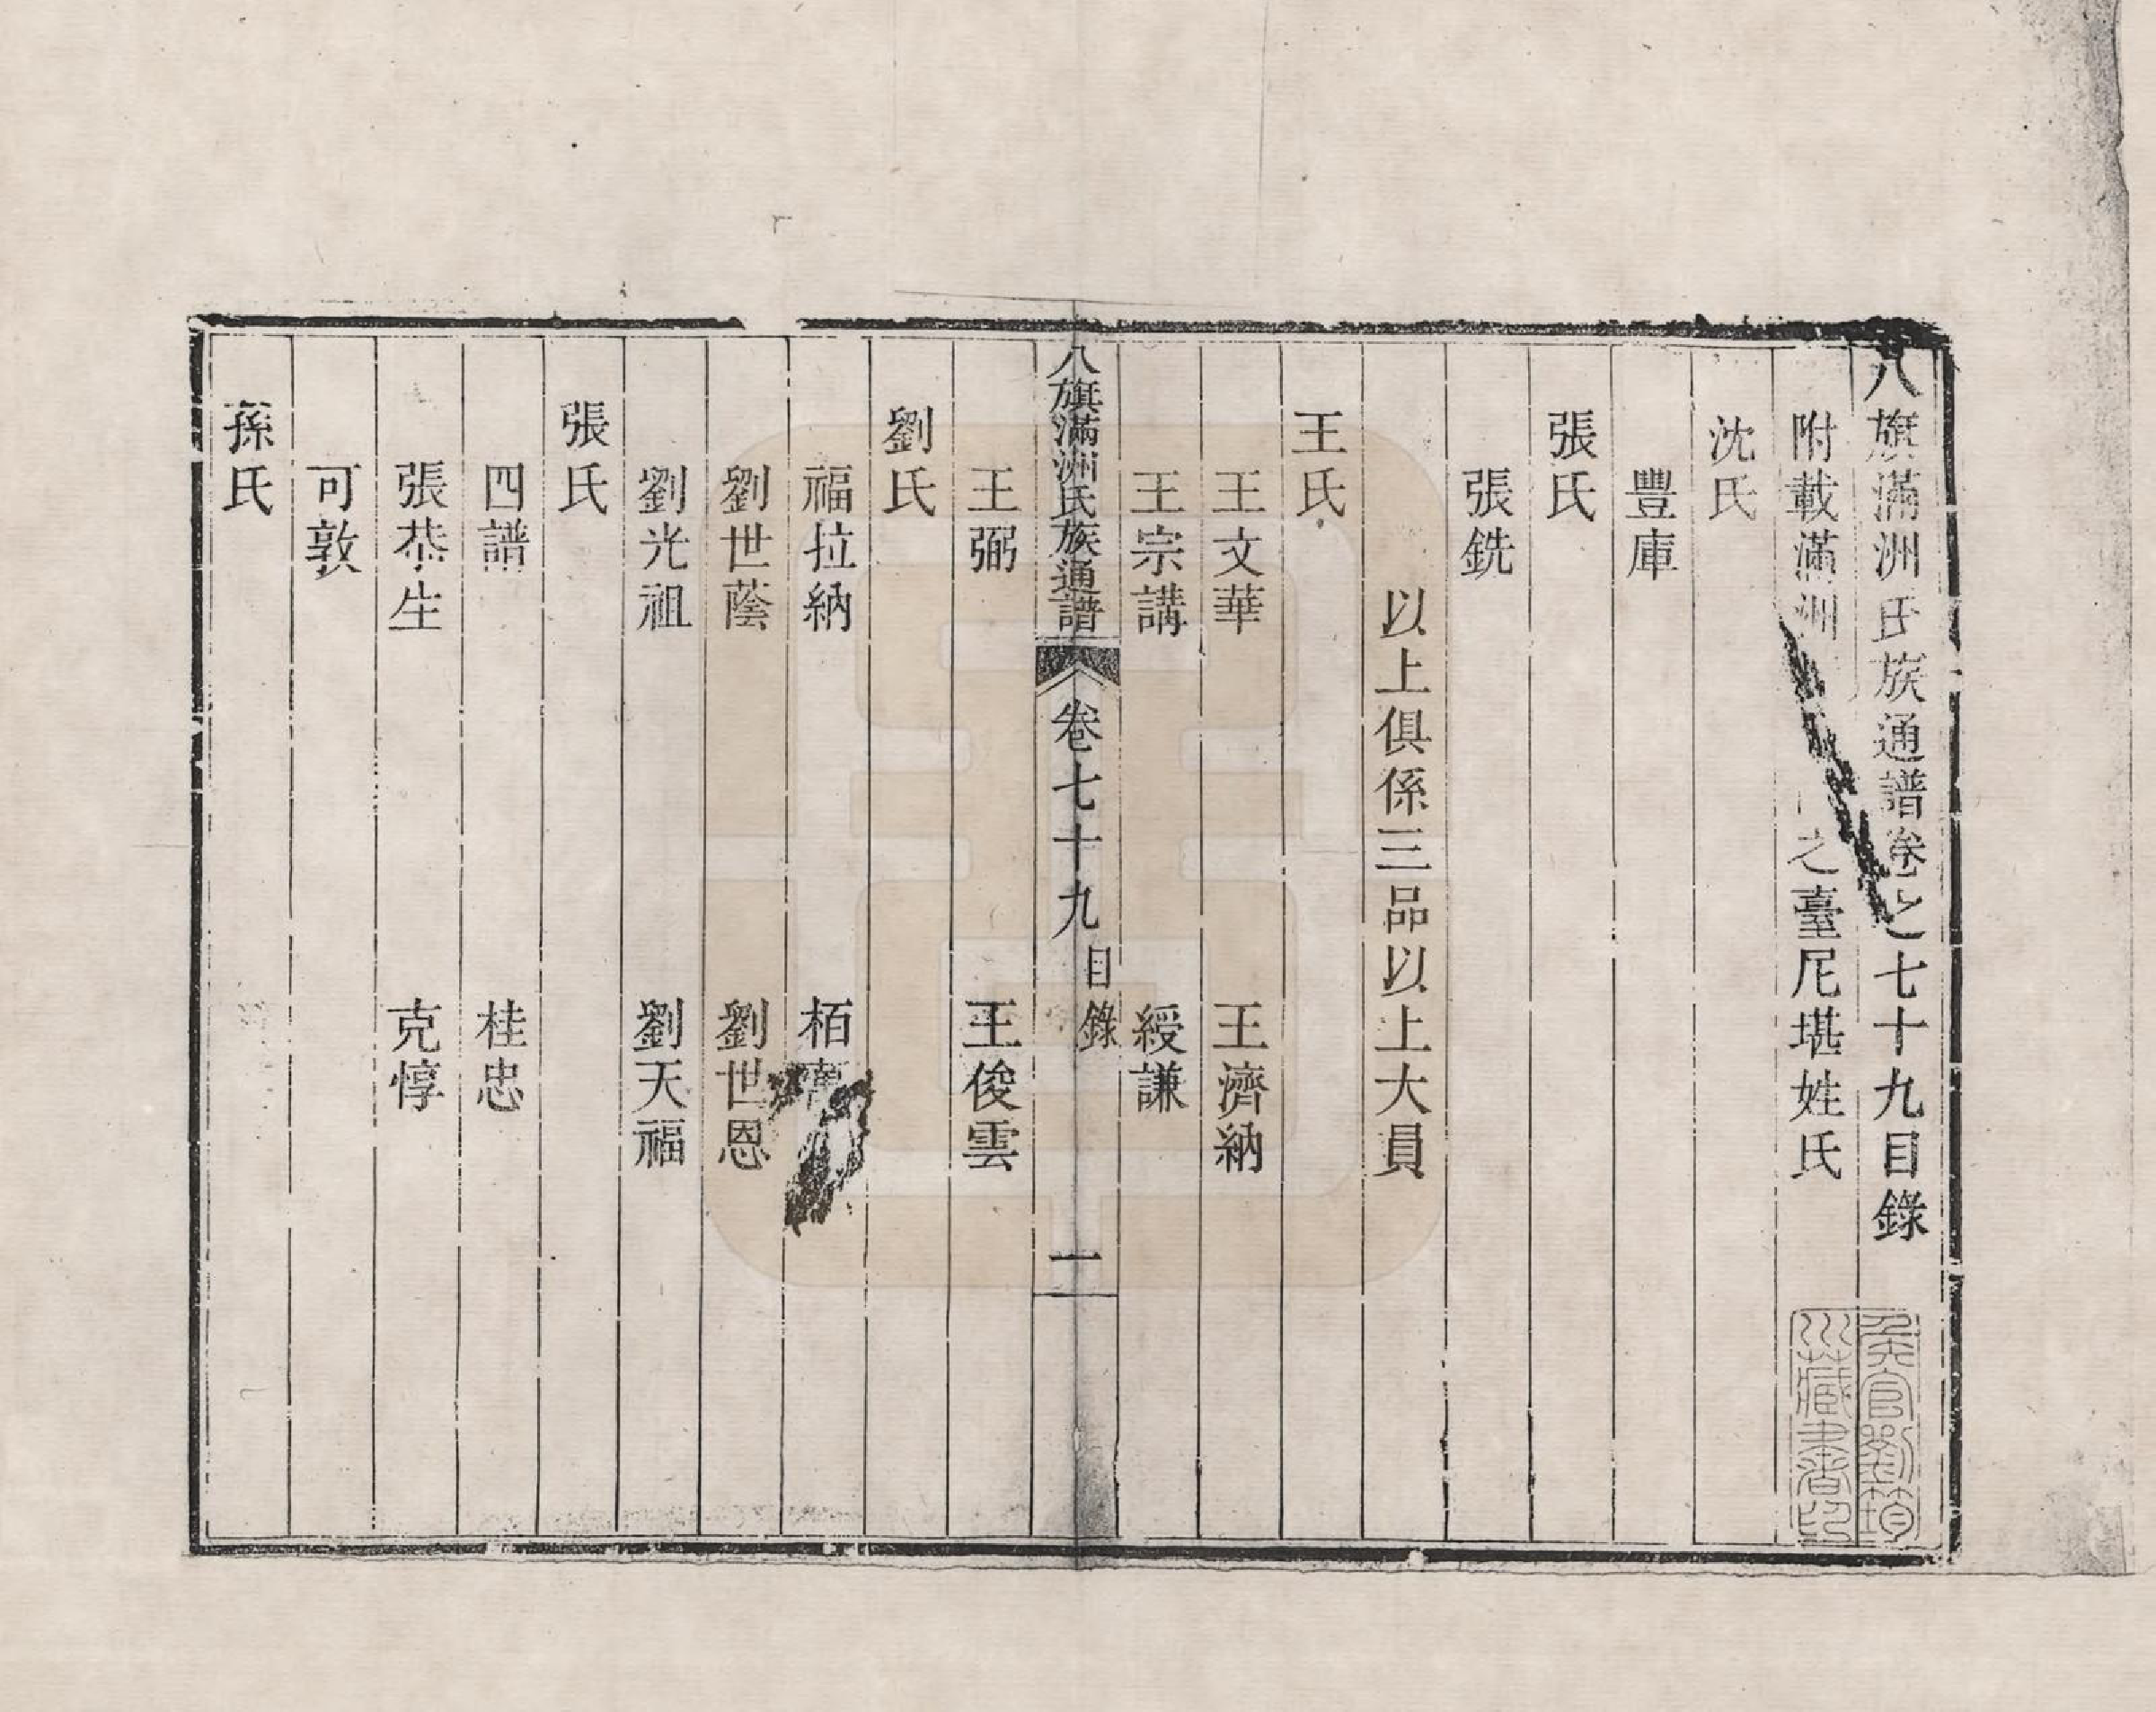 八旗滿洲氏族通譜卷之七十九目錄
附載滿洲之臺尼堪姓氏
沈氏
豐庫
張氏
張銑
以上俱係三品以上大員
王氏
王文華 王濟納
王宗講 綬謙
八旗滿洲氏族通譜 卷七十九 目錄 一
王弼 王俊雲
劉氏
福拉納 栢
劉世蔭 劉世恩
劉光祖 劉天福
張氏
四譜 桂忠
張恭生 克惇
可敦
孫氏
侯官劉筠川藏書印